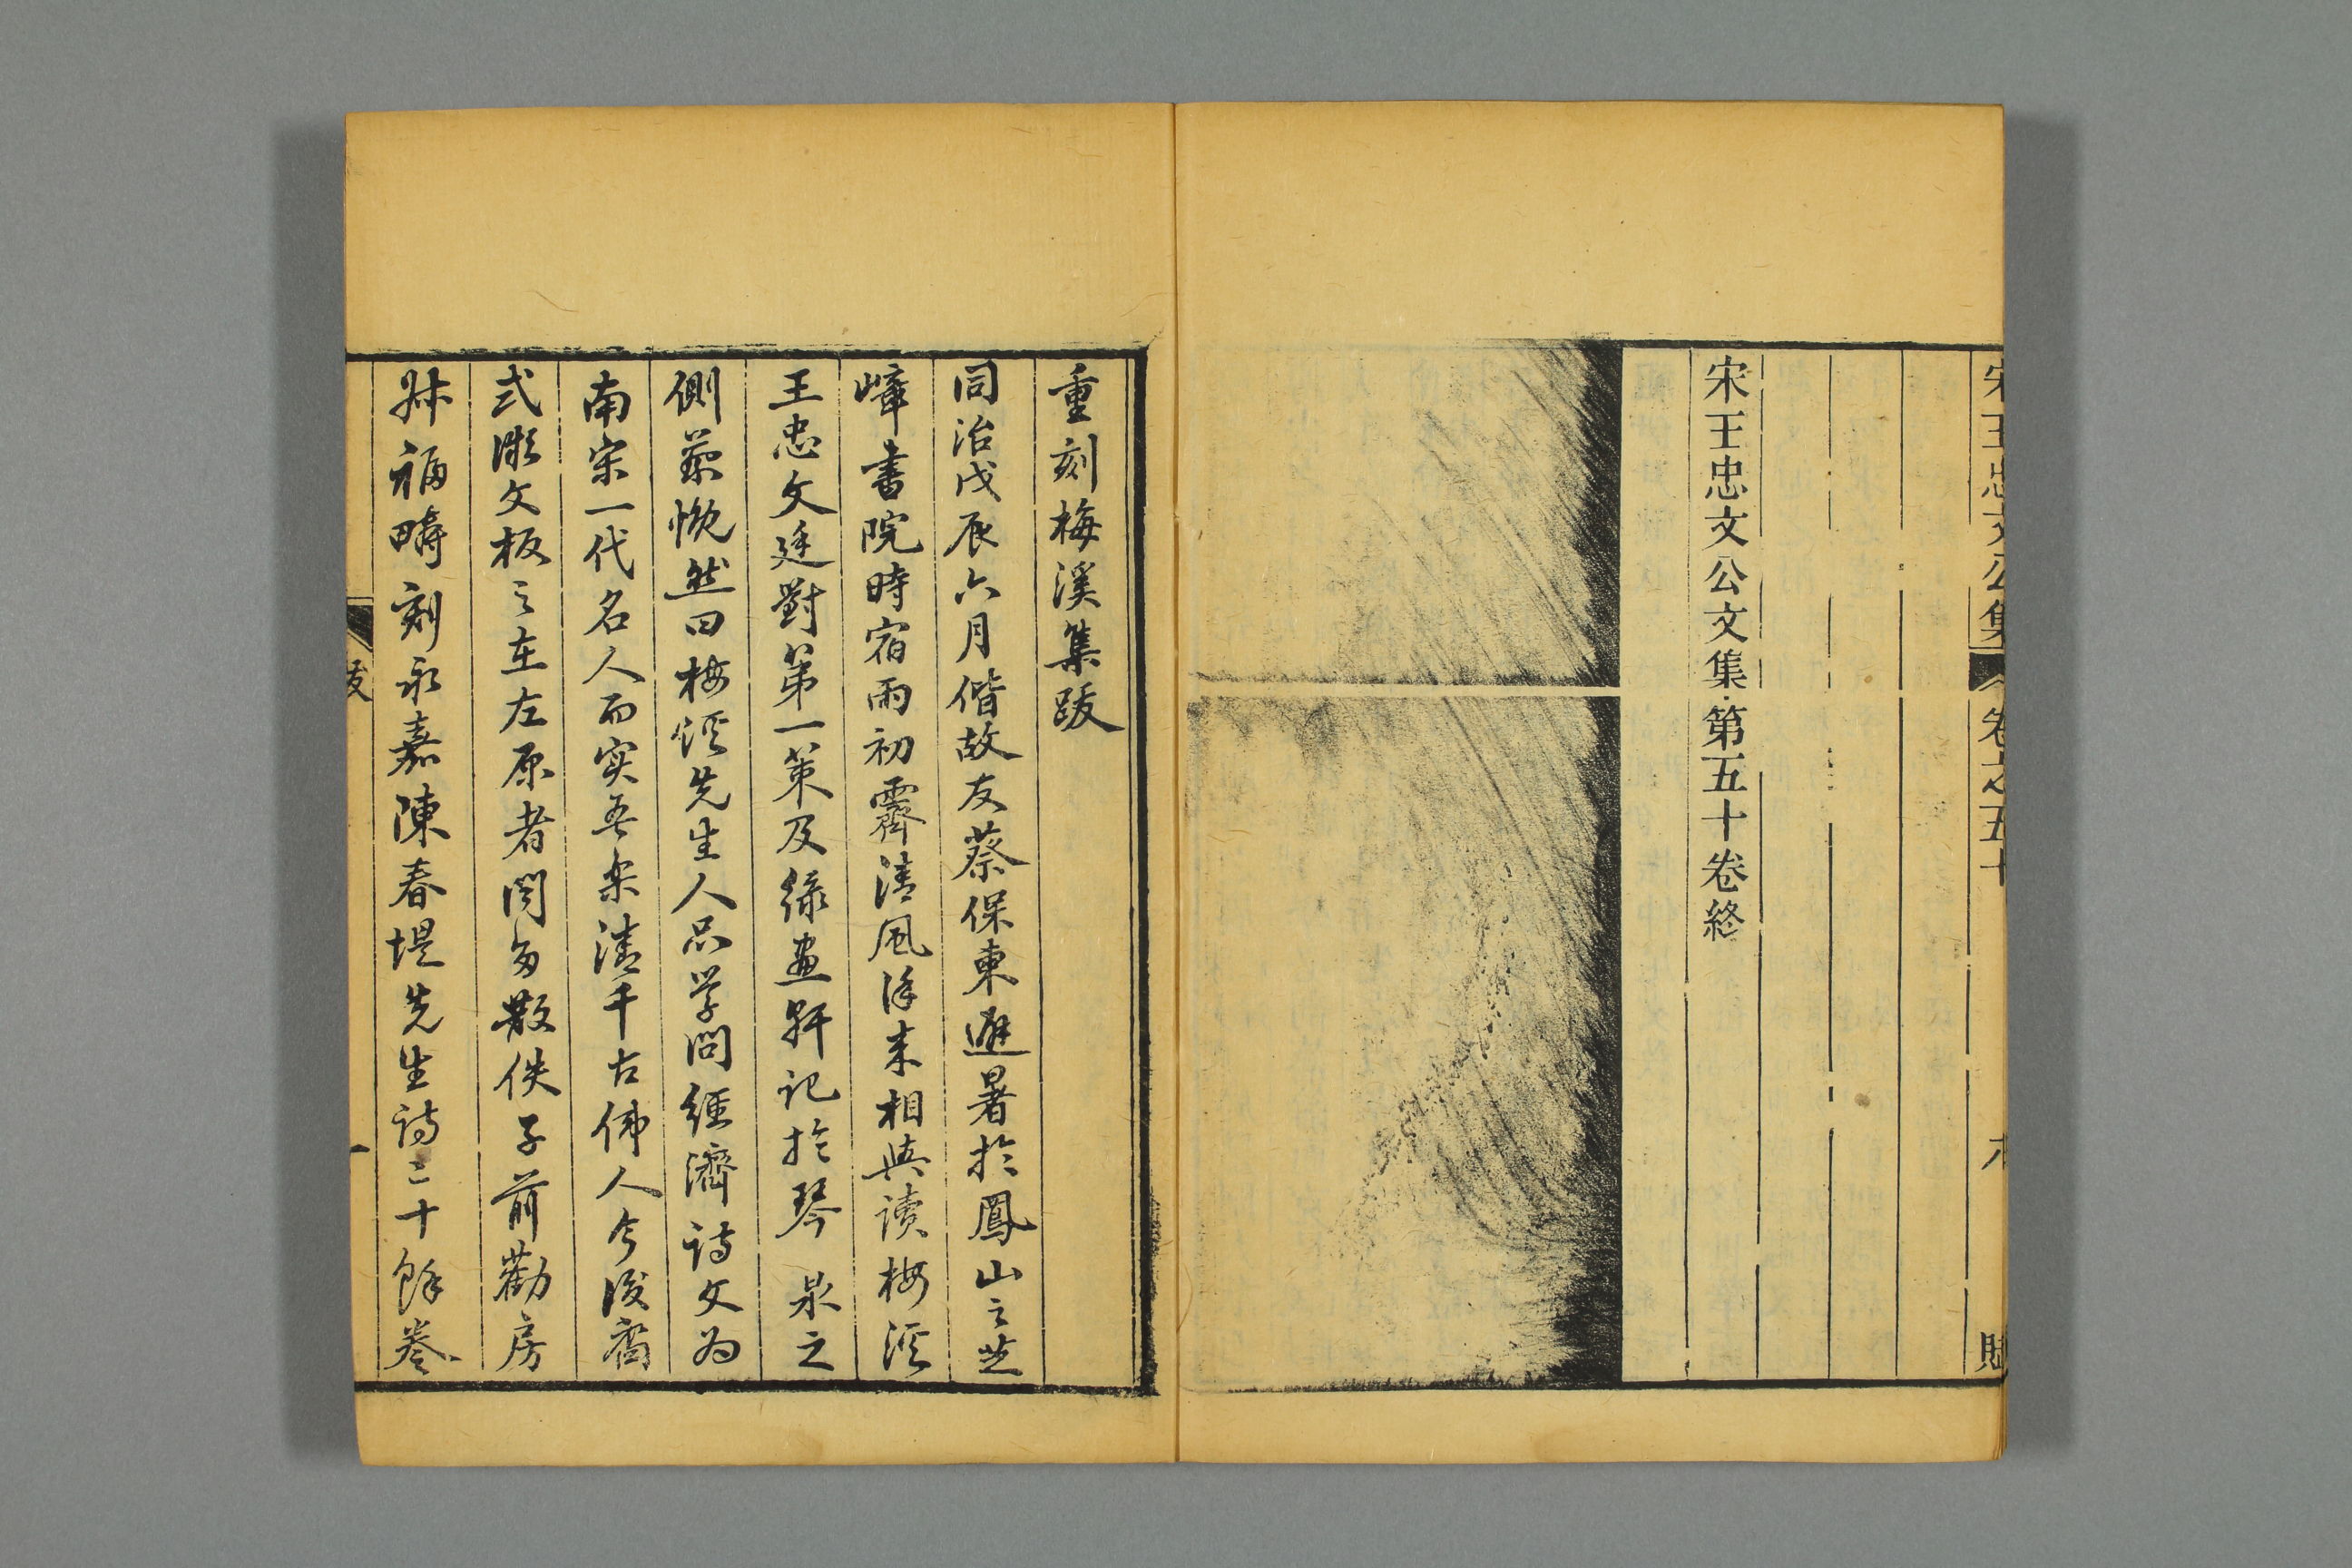 宋王忠文公集 卷之五十 賦
宋王忠文公文集第五十卷終
重刻梅溪集跋
同治戊辰六月偕故友蔡保東避暑於鳳山之芝
嶂書院時宿雨初霽清風徐来相與读梅溪
王忠文廷對第一策及綠畫軒记於琴泉之
側蔡愀然曰梅溪先生人品学問經濟詩文为
南宋一代名人而实吾樂清千古伟人今後裔
式微文板之在左原者闕多散佚子前勸房
叔福疇刻永嘉陳春堤先生詩二十餘卷
跋 一